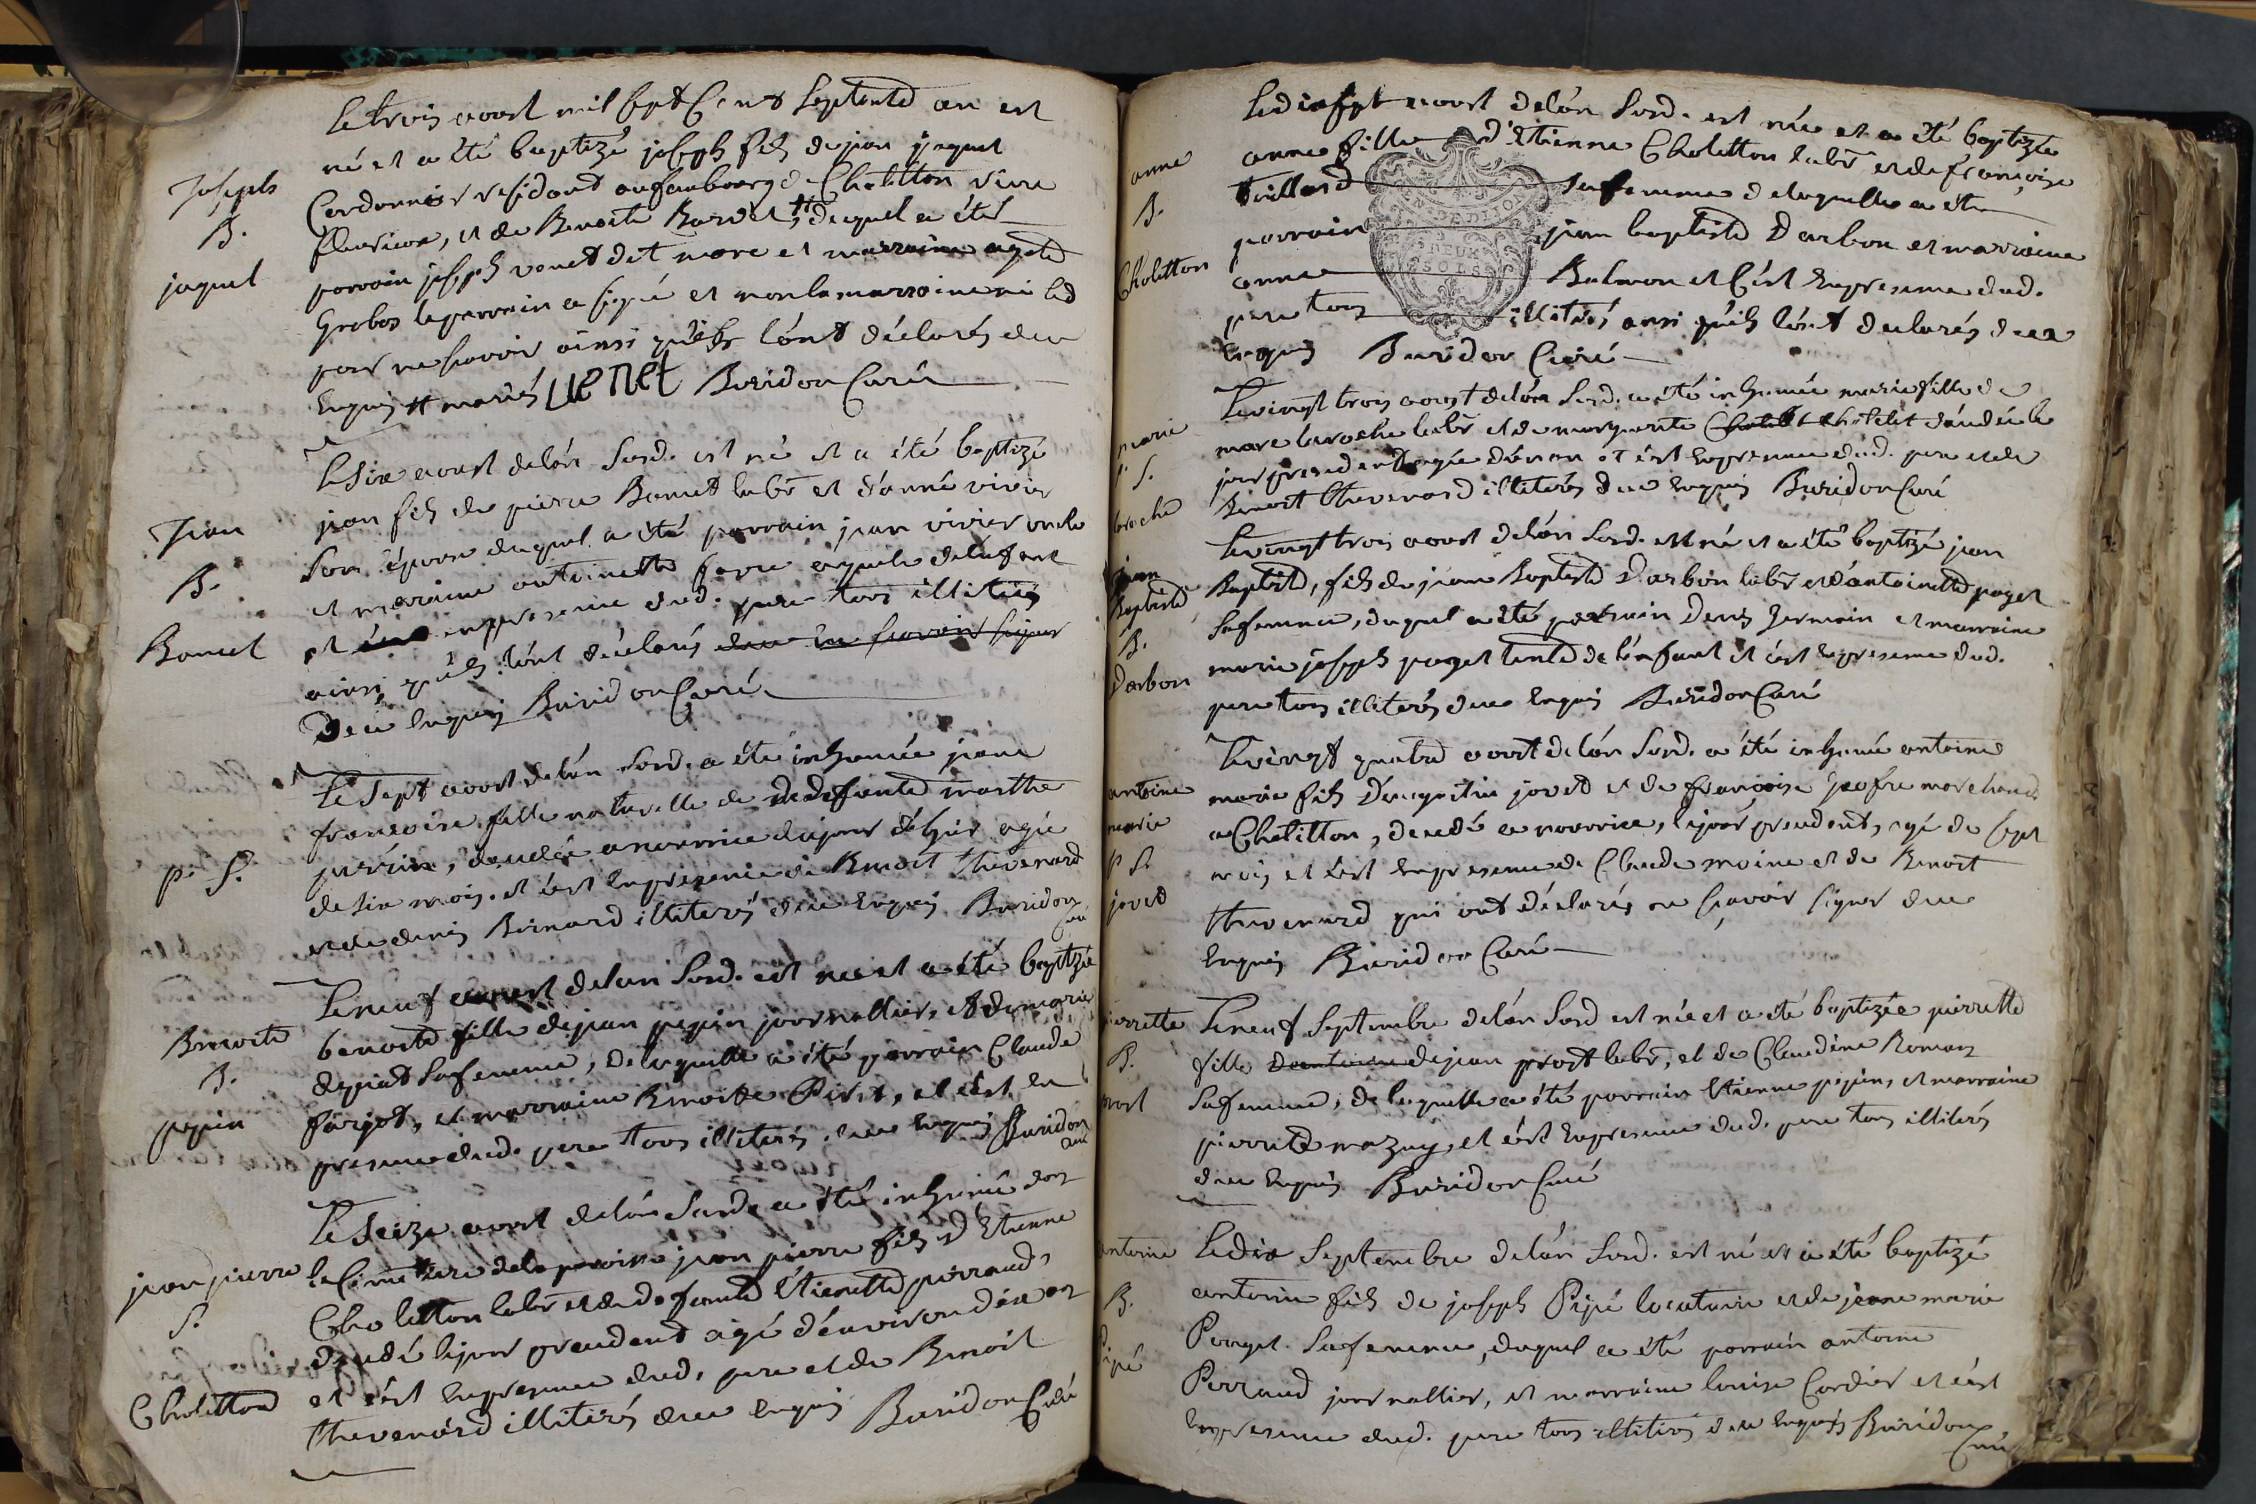 Le trois aoust mil sept Cent Septante un est
né et a été baptizé joseph fils de jean jaquet
Cordonnier residant au faubourg de Choletton vivre
et de Benoite duquel a été
parrain joseph venet dit more et marraine agate
Grobos le parrain a signé et non la marraine ni led
pour ne sçavoir ainsi qu'ils l'ónt déclarés deux
Enquis # mariés venet Buridon Curé
Joseph
B.
jaquet
Le Six aoust de lán Susd. est né et a été baptizé
jean fils de pierre Bonnet labr et d'anne vivier
Son épouse duquel a été parrain jean vivier oncle
et maraine antoinette favre ayeule de lenfant
et enpresence dud. pere tous illitérés
ainsi qu'ils lónt déclarés de ce ne scavoir signer
De ce Enquis Buridon Curé
Jean
B.
Bonnet
Le Sept aoust de lán Susd. a été inhumée jeanne
francoise fille naturelle de dedefunte marthe
perrin, decedée a nourrice du jour d'hier agée
de six mois. et c'est en presence de Benoit thevenard
et de denis Bernard illiterés de ce Enquis Buridon
Curé
p. S.
Le neuf aoust de lan Susd. est née et a été baptizée
benoite fille de jean pepin journallier, et de marie
sa femme, de laquelle a été parrain Claude
farjot, et marraine Benoitte Pivot, et c'est en
presence dud. pere tous illiterés de ce Enquis Buridon
curé
Benoite
B.
pepin
Le Seize aoust de lán Susd. a été inhumé dans
le Cimetiere de la paroisse jean pierre fils d'Etienne
Choletton labr et de defunte Etiennette perraud,
decedé le jour precedent agé d'environ dix ans
et c'est Enpresence dud. pere et de Benoit
thevenard illiterés de ce Enquis Buridon Curé
jean pierre
S.
Choletton
Le dix sept aoust de lán Susd. est née et a été baptizée
anne fille d'Etienne Choletton labr et de françoise
trillard sa femme de laquelle a été
parrain jean baptiste Darbon et marraine
anne Balmon et C'est Enpresence dud.
pere tous illitérés ansi qu'ils lónt declarés de ce
Enquis Buridon Curé
DEUX
SOLS
anne
B.
Choletton
Le vingt trois aoust de lán Susd. a été inhumée marie fille de
marc laroche labr et de marguerite Cholet décédée le
jour precedent agée d'un an et c'est Enpresence dud. pere et de
Benoit thevenard illiterés de ce Enquis Buridon Curé
marie
p. S.
laroche
Le vingt trois aoust de lán Susd. est né et a été baptizé jean
Baptiste, fils de jean Baptiste Darbon labr et d'antoinette paget
sa femme, duquel a été parrain Denis Germain et marraine
marie joseph paget tante de lénfant et c'est Enpresence dud.
pere tous illiterés de ce Enquis Buridon Curé
jean
Baptiste
B.
Darbon
Le vingt quatre aoust de lán Susd. a été inhumé antoine
marie fils D'augustin jovet et de françoise marchand
a Choletton, decedé a nourrice, le jour precedent, agé de sept
mois et c'est Enpresence de Claude moine et de Benoit
thevenard qui ont déclarés ne sçavoir signer de ce
Enquis Buridon Curé
antoine
marie
p S.
jovet
Le neuf Septembre de lán Susd est née et a été baptizée pierrette
fille de jean prost labr, et de Claudine Roman
Sa femme, de laquelle a été parrain Etienne pepin, et marraine
pierrette mazuy, et c'est Enpresence dud. pere tous illiterés
de ce Enquis Buridon Curé
pierrette
B.
prost
Le dix Septembre de lán Susd. est né et a été baptizé
antoine fils de joseph Pipé locataire et de jeanne marie
Poujet Sa femme, duquel a été parrain antoine
Perraud journallier, et marraine louise Cordier et c'est
Enpresence dud. pere tous illitérés de ce Enquis Buridon
Curé
antoine
B.
Pipé